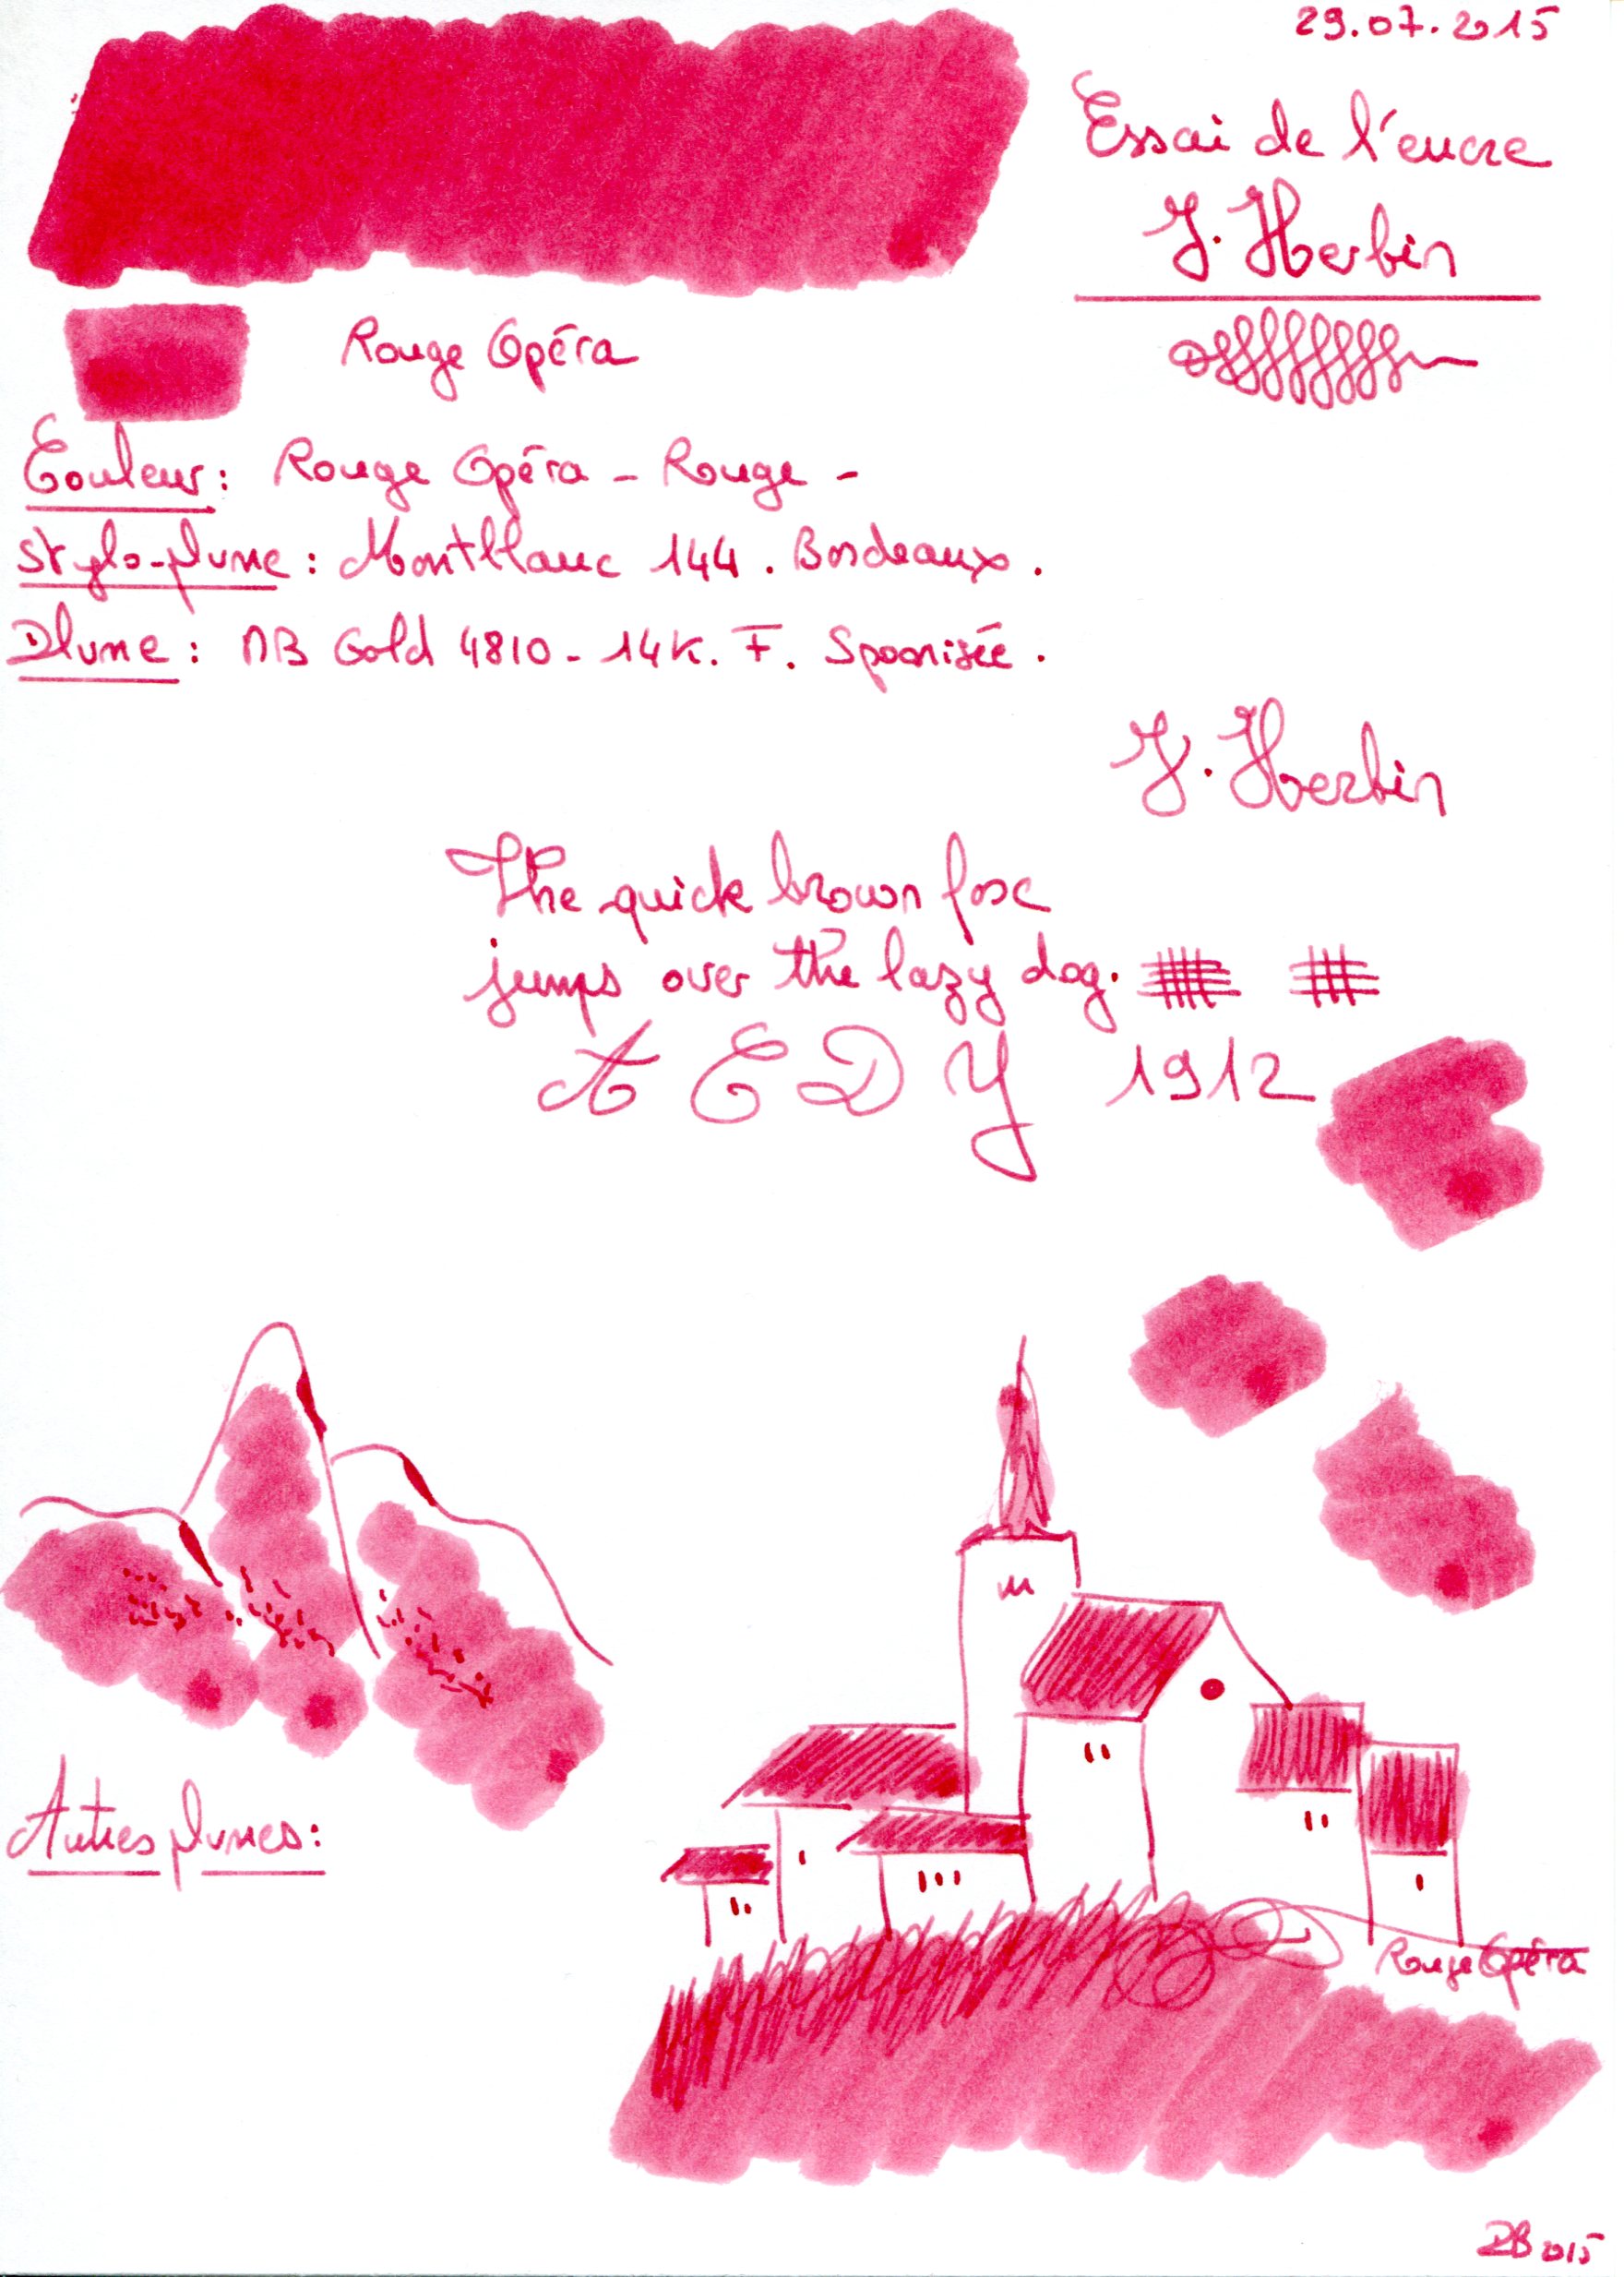 29.07.2015
Essai de l'encre
J. Herbin
Rouge Opéra
Couleur: Rouge Opéra - Rouge -
Stylo-plume: Montblanc 144. Bordeaux.
Plume: MB Gold 4810 - 14K. F. Spoonisée.
J. Herbin
The quick brown fox
jumps over the lazy dog.
A E D Y 1912
Autres plumes:
Rouge Opéra
2015